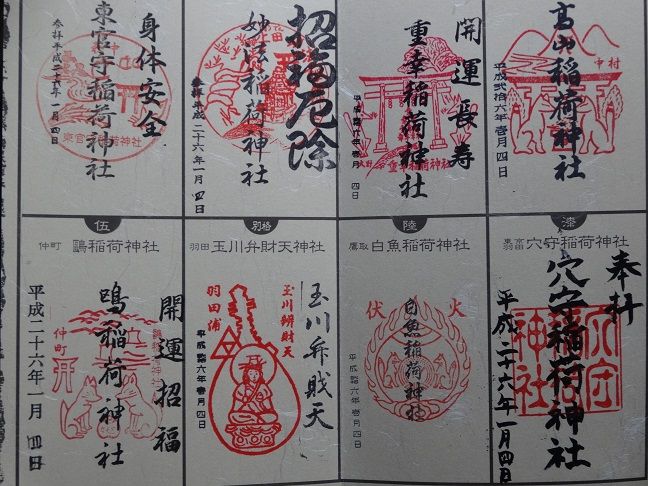 身体安全
東官守稲荷神社
参拝平成二十六年一月四日
招福厄除
妙法稲荷神社
参拝平成二十六年一月四日
開運長寿
重幸稲荷神社
重幸稲荷神社
高山稲荷神社
中村
平成弐拾六年壱月四日
伍
仲町 鷗稲荷神社
開運招福
鳴稲荷神社
仲町
平成二十六年一月四日
別格
羽田 玉川弁財天神社
玉川弁財天
玉川辨財天
羽田浦
陸
鷹取 白魚稲荷神社
火伏
白魚稲荷神社
漆
穴守稲荷神社
奉拝
穴守稲荷神社
平成二十六年一月四日